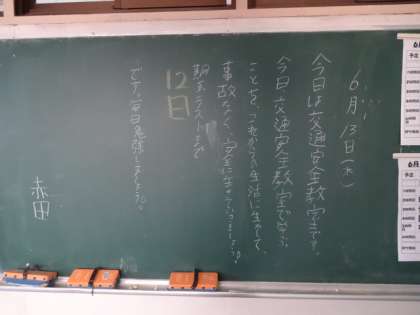 6月13日(木)
今日は交通安全教室です。
今日、交通安全教室で学ぶ
ことを、これからの生活に生かして、
事故なく、安全に生きていきましょう。
期末テストまで
12日
です。毎日勉強しましょう。
赤田
6月
予定
6月
予定